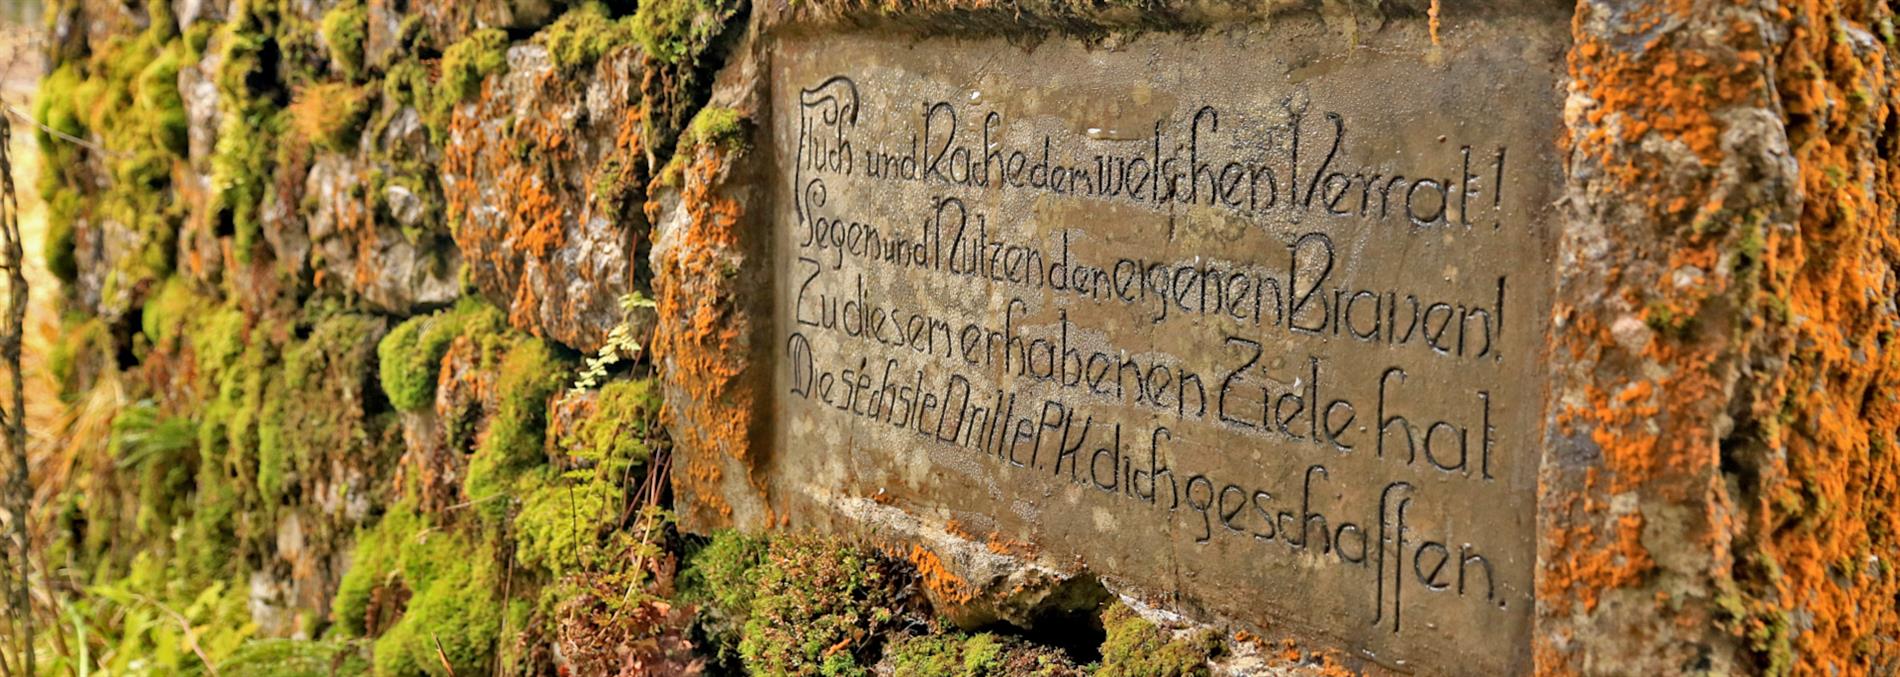 Fluch und Rache dem welschen Verrat!
Segen und Nutzen den eigenen Braven!
Zu diesem erhabenen Ziele hat
Die sechste Dritte P.K. dich geschaffen.